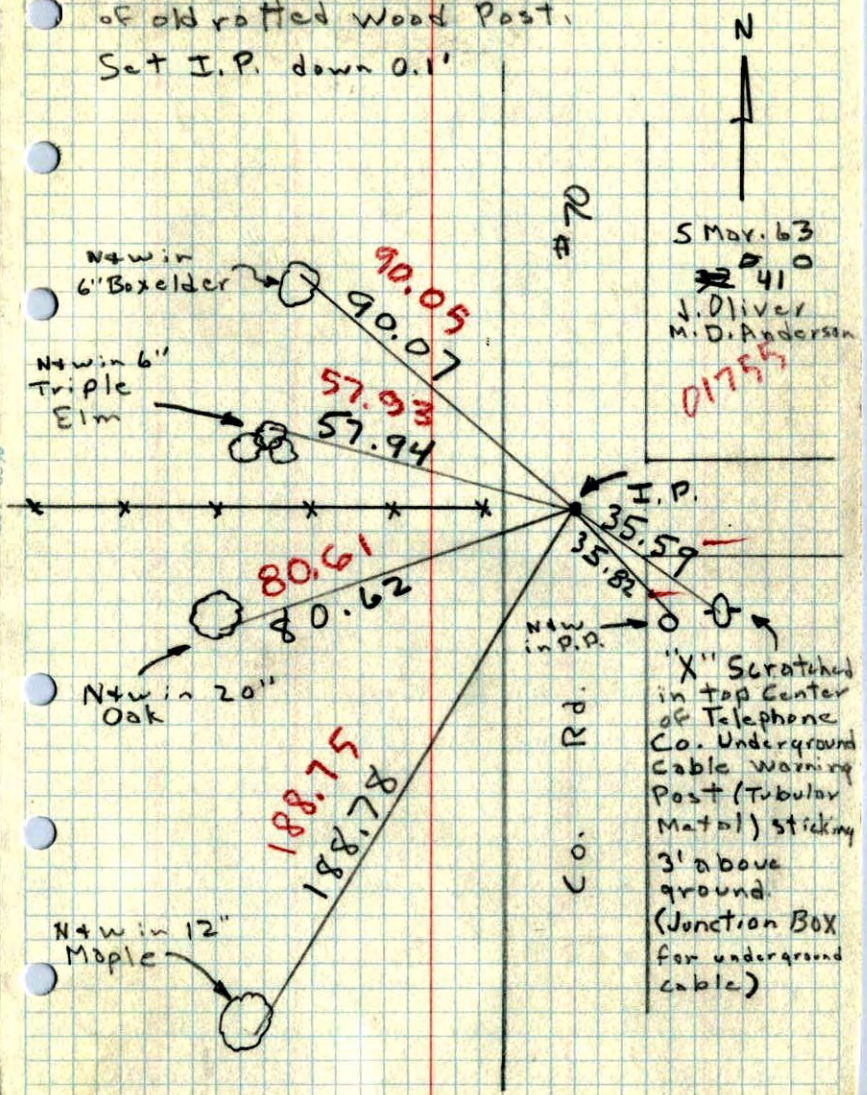 of old rotted Wood Post.
Set I.P. down 0.1'
N
#70
5 Mar. 63
41
J. Oliver
M. D. Anderson
01755
N+W in
6" Boxelder
90.05
90.07
N+W in 6"
Triple
Elm
57.93
57.94
I.P.
35.59
35.82
80.61
80.62
N+W in 20"
Oak
N+W
in P.P.
"X" Scratched
in top Center
of Telephone
Co. Underground
Cable Warning
Post (Tubular
Metal) sticking
3' above
ground.
(Junction Box
for underground
cable)
Co. Rd.
188.75
188.78
N+W in 12"
Maple